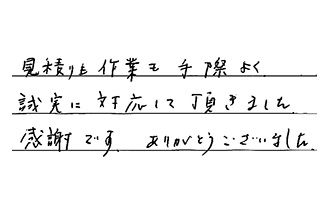 見積りも作業も手際よく
誠実に対応して頂きました
感謝です。ありがとうございました。